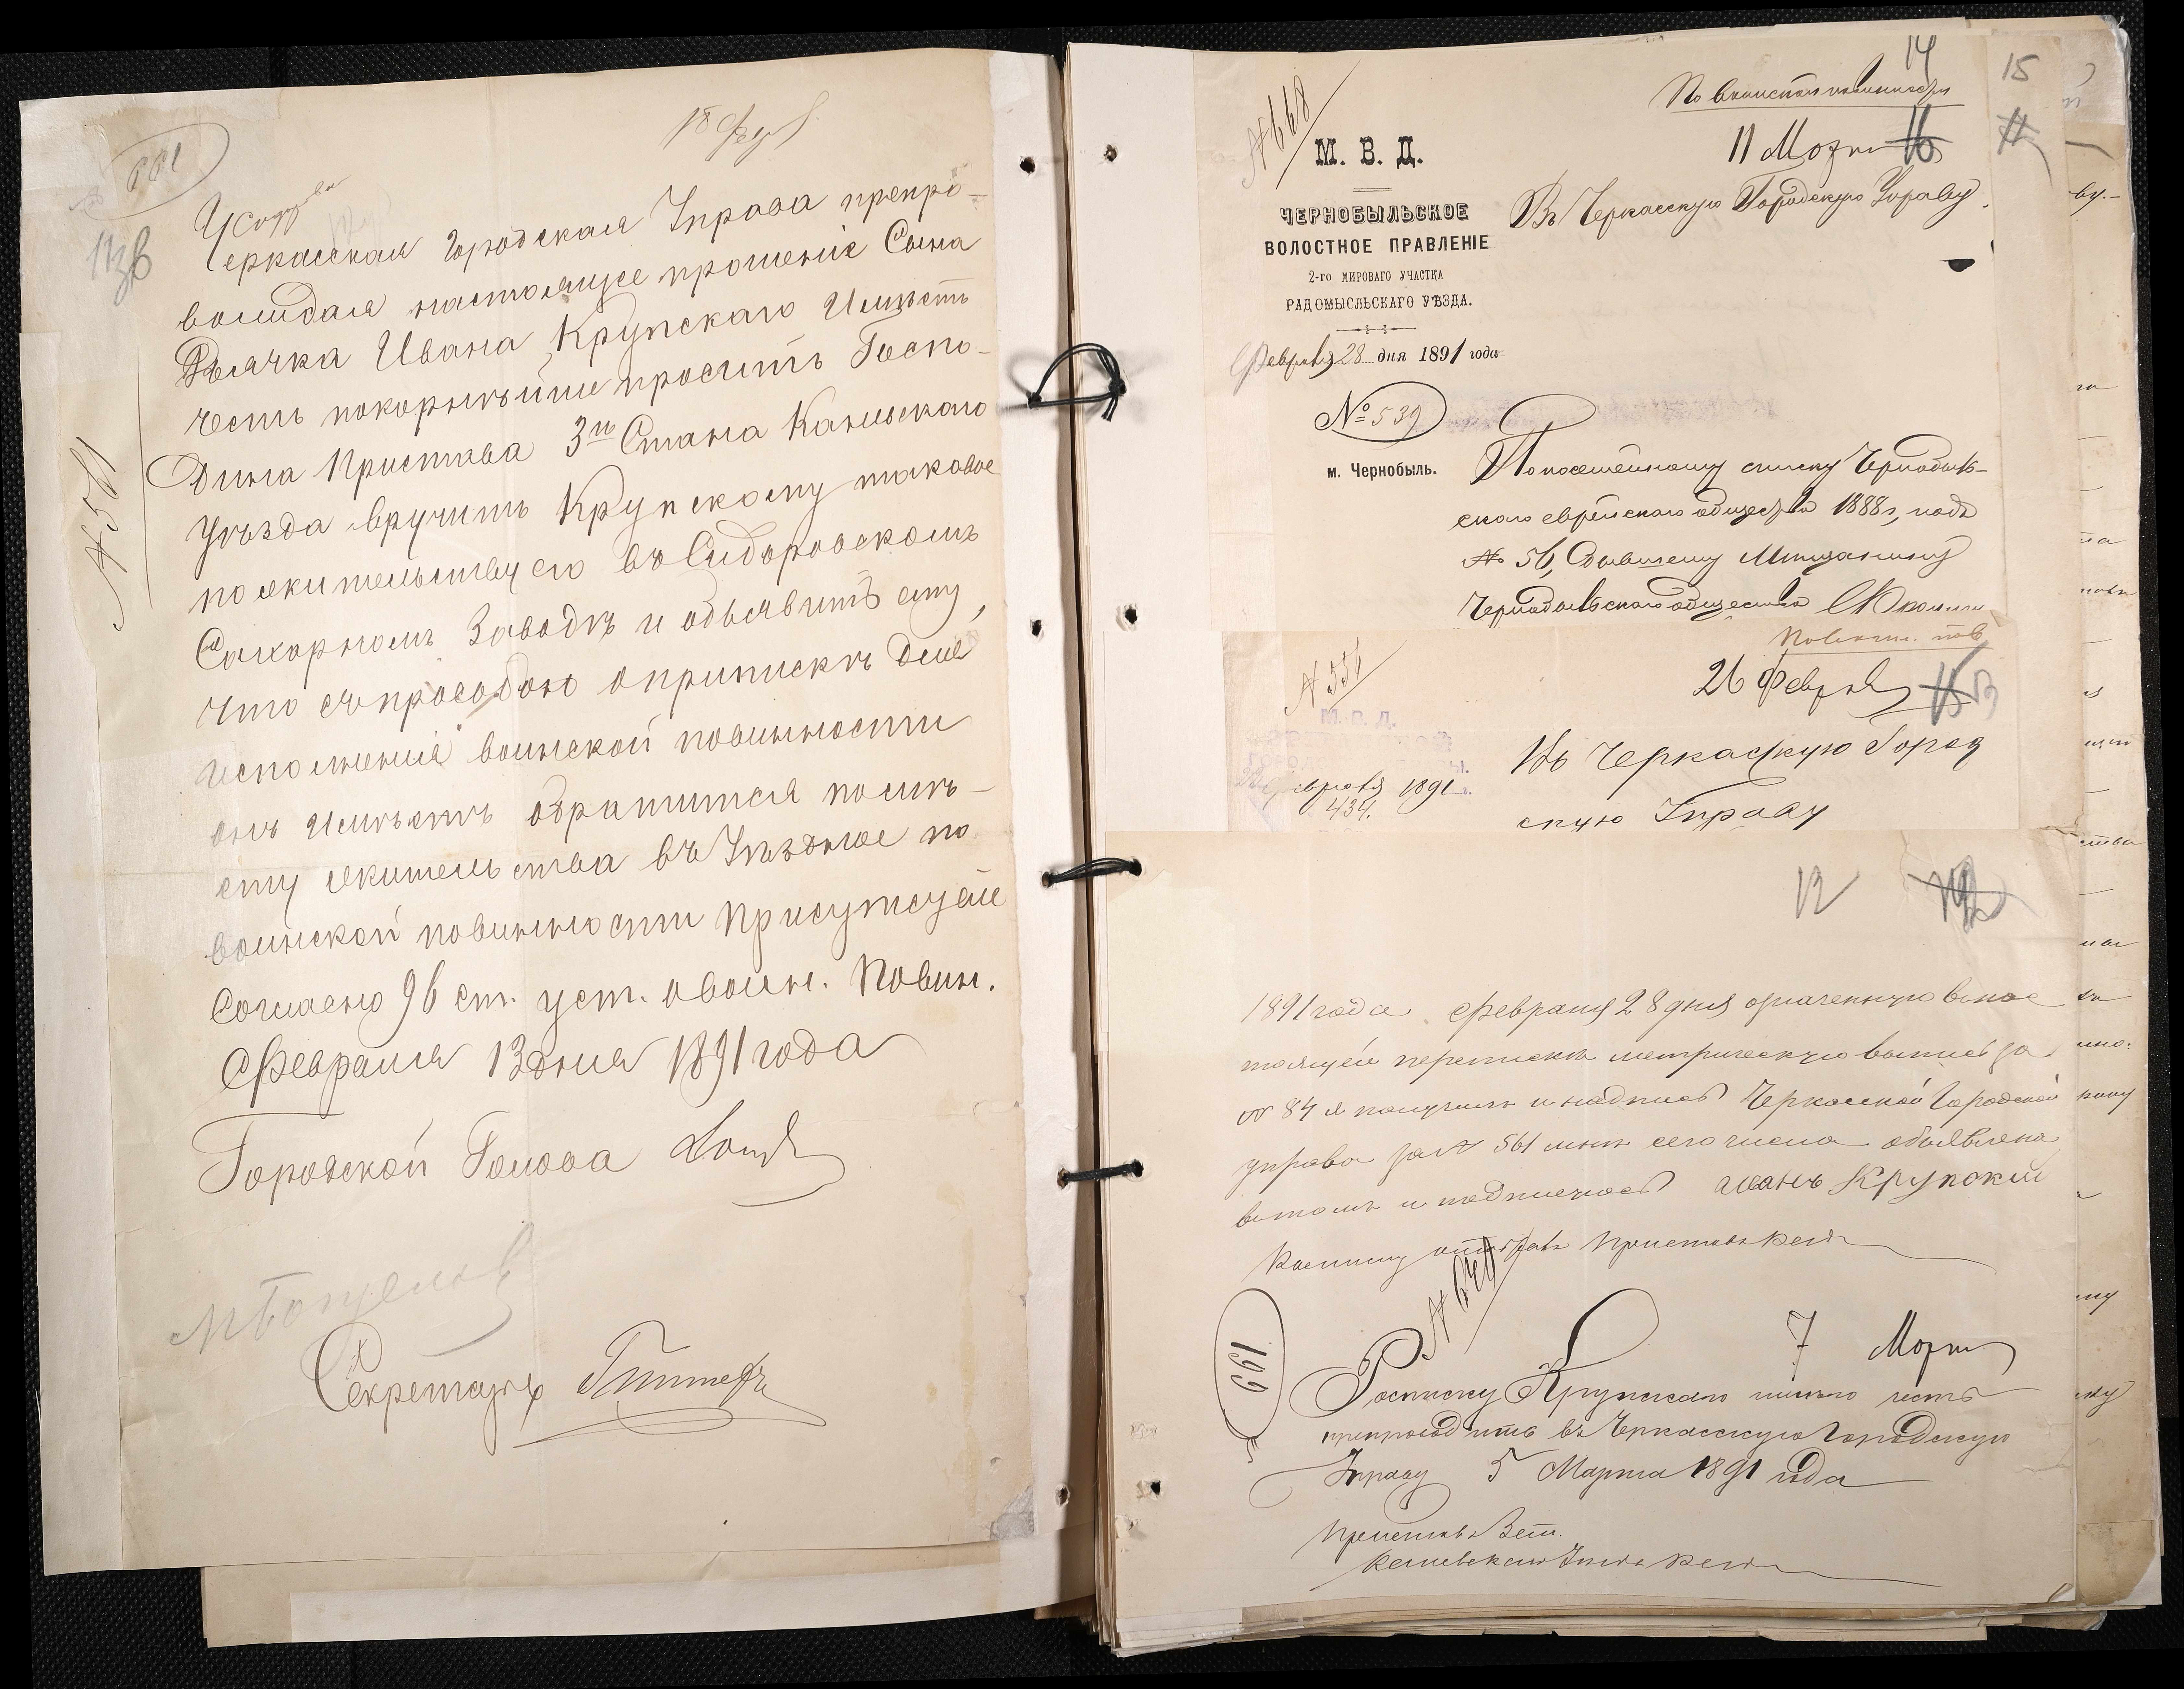 18 Февр
681
Исходящ
Черкасская Городская Управа препро-
вождая настоящее прошеніе Сына
Дьячка Ивана Крупскаго Имѣетъ
честь покорнѣйше просить Госпо-
дина Пристава 3го Стана Каневскаго
Уѣзда вручить Крупскому таковое
по жительству его въ Сидоровскомъ
Сахарномъ Заводѣ и объявить ему,
что съ просьбою о припискѣ для
исполненія воинской повинности
онъ имѣетъ обратится по мѣ-
сту жительства въ Уѣздное по
воинской повинности присутствіе
Согласно 96 ст. уст. о воин. Повин.
Февраля 13 дня 1891 года
Городской Голова
№ 561
Секретарь
14
15
По воинской повинности
№ 668
11 Марта 16
М. В. Д.
ЧЕРНОБЫЛЬСКОЕ
ВОЛОСТНОЕ ПРАВЛЕНІЕ
2-го МИРОВАГО УЧАСТКА
РАДОМЫСЛЬСКАГО УѢЗДА.
Февраля 28 дня 1891 года
№ 539
м. Чернобыль.
Въ Черкасскую Городскую Управу.
По посемейному списку Чернобыль-
скаго еврейскаго общества 1888 г, подъ
№ 56, бывшему Мѣщанину
Чернобыльскаго общества
№ 551
26 Февраля
М. В. Д.
Февраля 1891 г.
434.
Въ Черкаскую Город
скую Управу
12
1891 года Февраля 28 дня означенную в нас
тоящей переписке метрическую выпись за
№ 84 я получилъ и надпись Черкасской Городской
управы за № 561 мнѣ сего числа объявлена
в томъ и подписуюсь Иванъ Крупский
№ 640
199
7 Марта
Росписку Крупскаго имѣю честь
препроводить въ Черкасскую Городскую
Управу 5 Марта 1891 года
Приставъ 3 ст.
Каневскаго Уѣзда